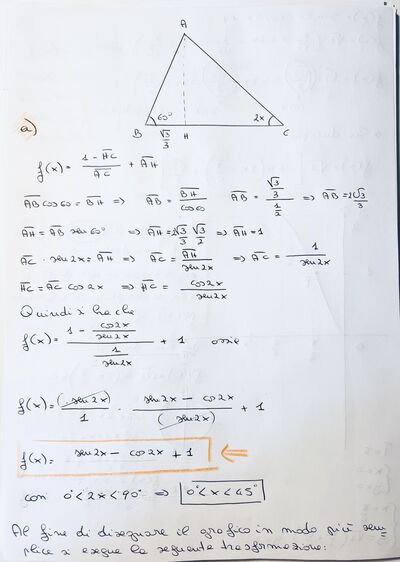 A
a)
60°
2x
B
√3/3
H
C
f(x) = (1 - H̅C̅)/A̅C̅ + A̅H̅
A̅B̅ cos 60 = B̅H̅ => A̅B̅ = B̅H̅/cos 60 A̅B̅ = (√3/3)/(1/2) => A̅B̅ = 2√3/3
A̅H̅ = A̅B̅ sen 60° => A̅H̅ = 2√3/3 √3/2 => A̅H̅ = 1
A̅C̅ · sen 2x = A̅H̅ => A̅C̅ = A̅H̅/sen 2x => A̅C̅ = 1/sen 2x
H̅C̅ = A̅C̅ cos 2x => H̅C̅ = cos 2x/sen 2x
Quindi si ha che
f(x) = (1 - cos 2x/sen 2x)/(1/sen 2x) + 1 ossia
f(x) = (sen 2x)/1 · (sen 2x - cos 2x)/(sen 2x) + 1
f(x) = sen 2x - cos 2x + 1 <=
con 0° < 2x < 90° => 0° < x < 45°
Al fine di disegnare il grafico in modo più sem=
plice si esegue la seguente trasformazione: